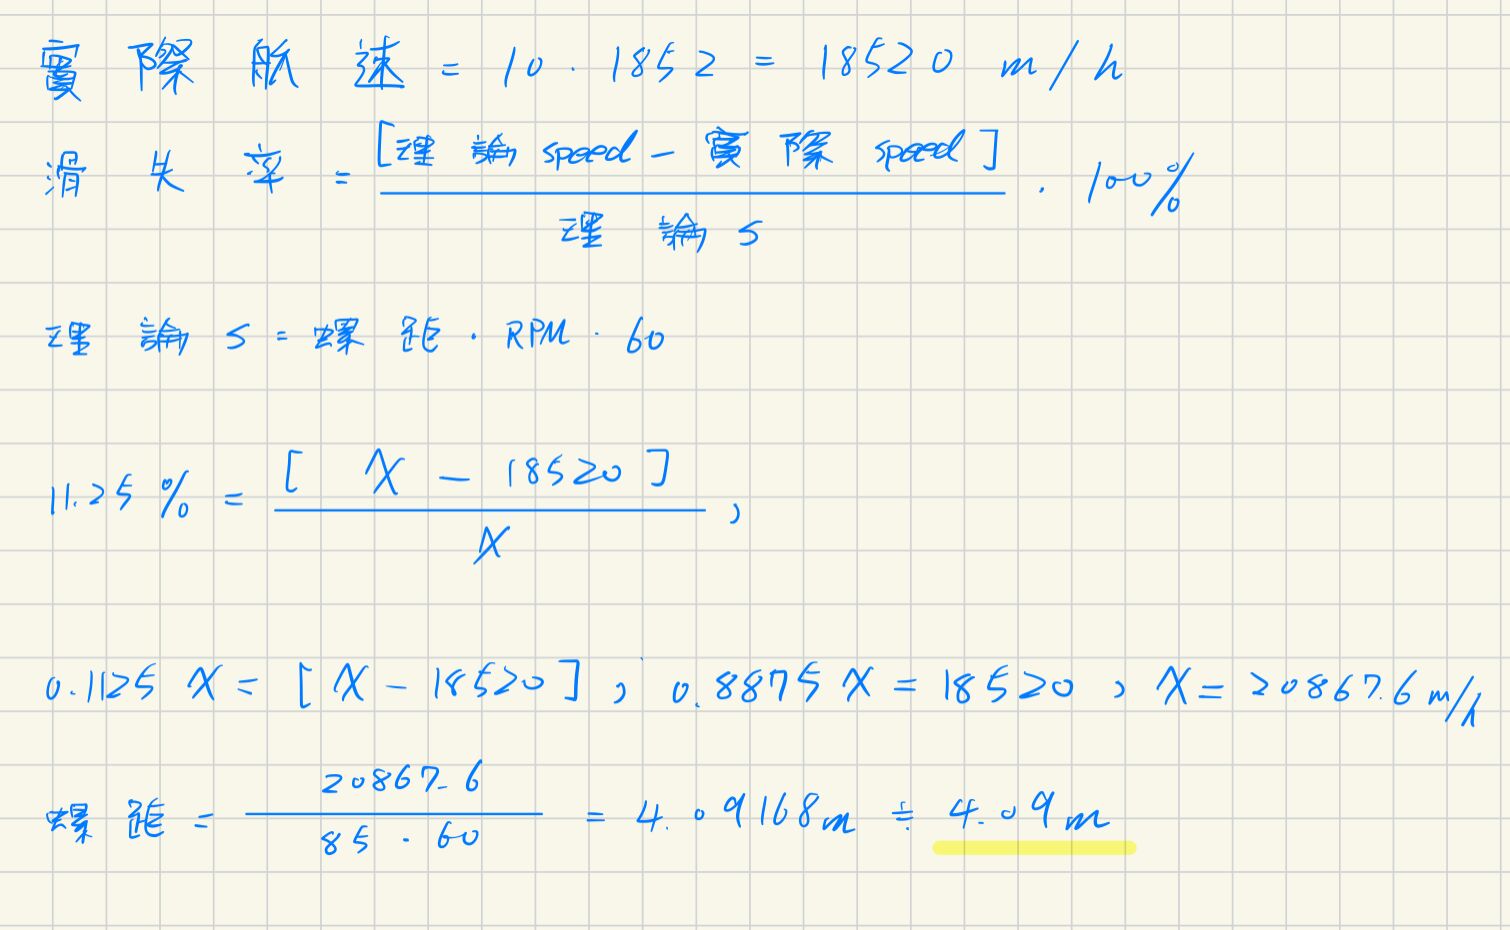 實際航速 = 10 · 1852 = 18520 m/h
滑失率 = [理論speed - 實際speed] / 理論s · 100%
理論s = 螺距 · RPM · 60
11.25% = [X - 18520] / X ,
0.1125X = [X - 18520] , 0.8875X = 18520 , X = 20867.6 m/h
螺距 = 20867.6 / 85 · 60 = 4.09168m ≑ 4.09m